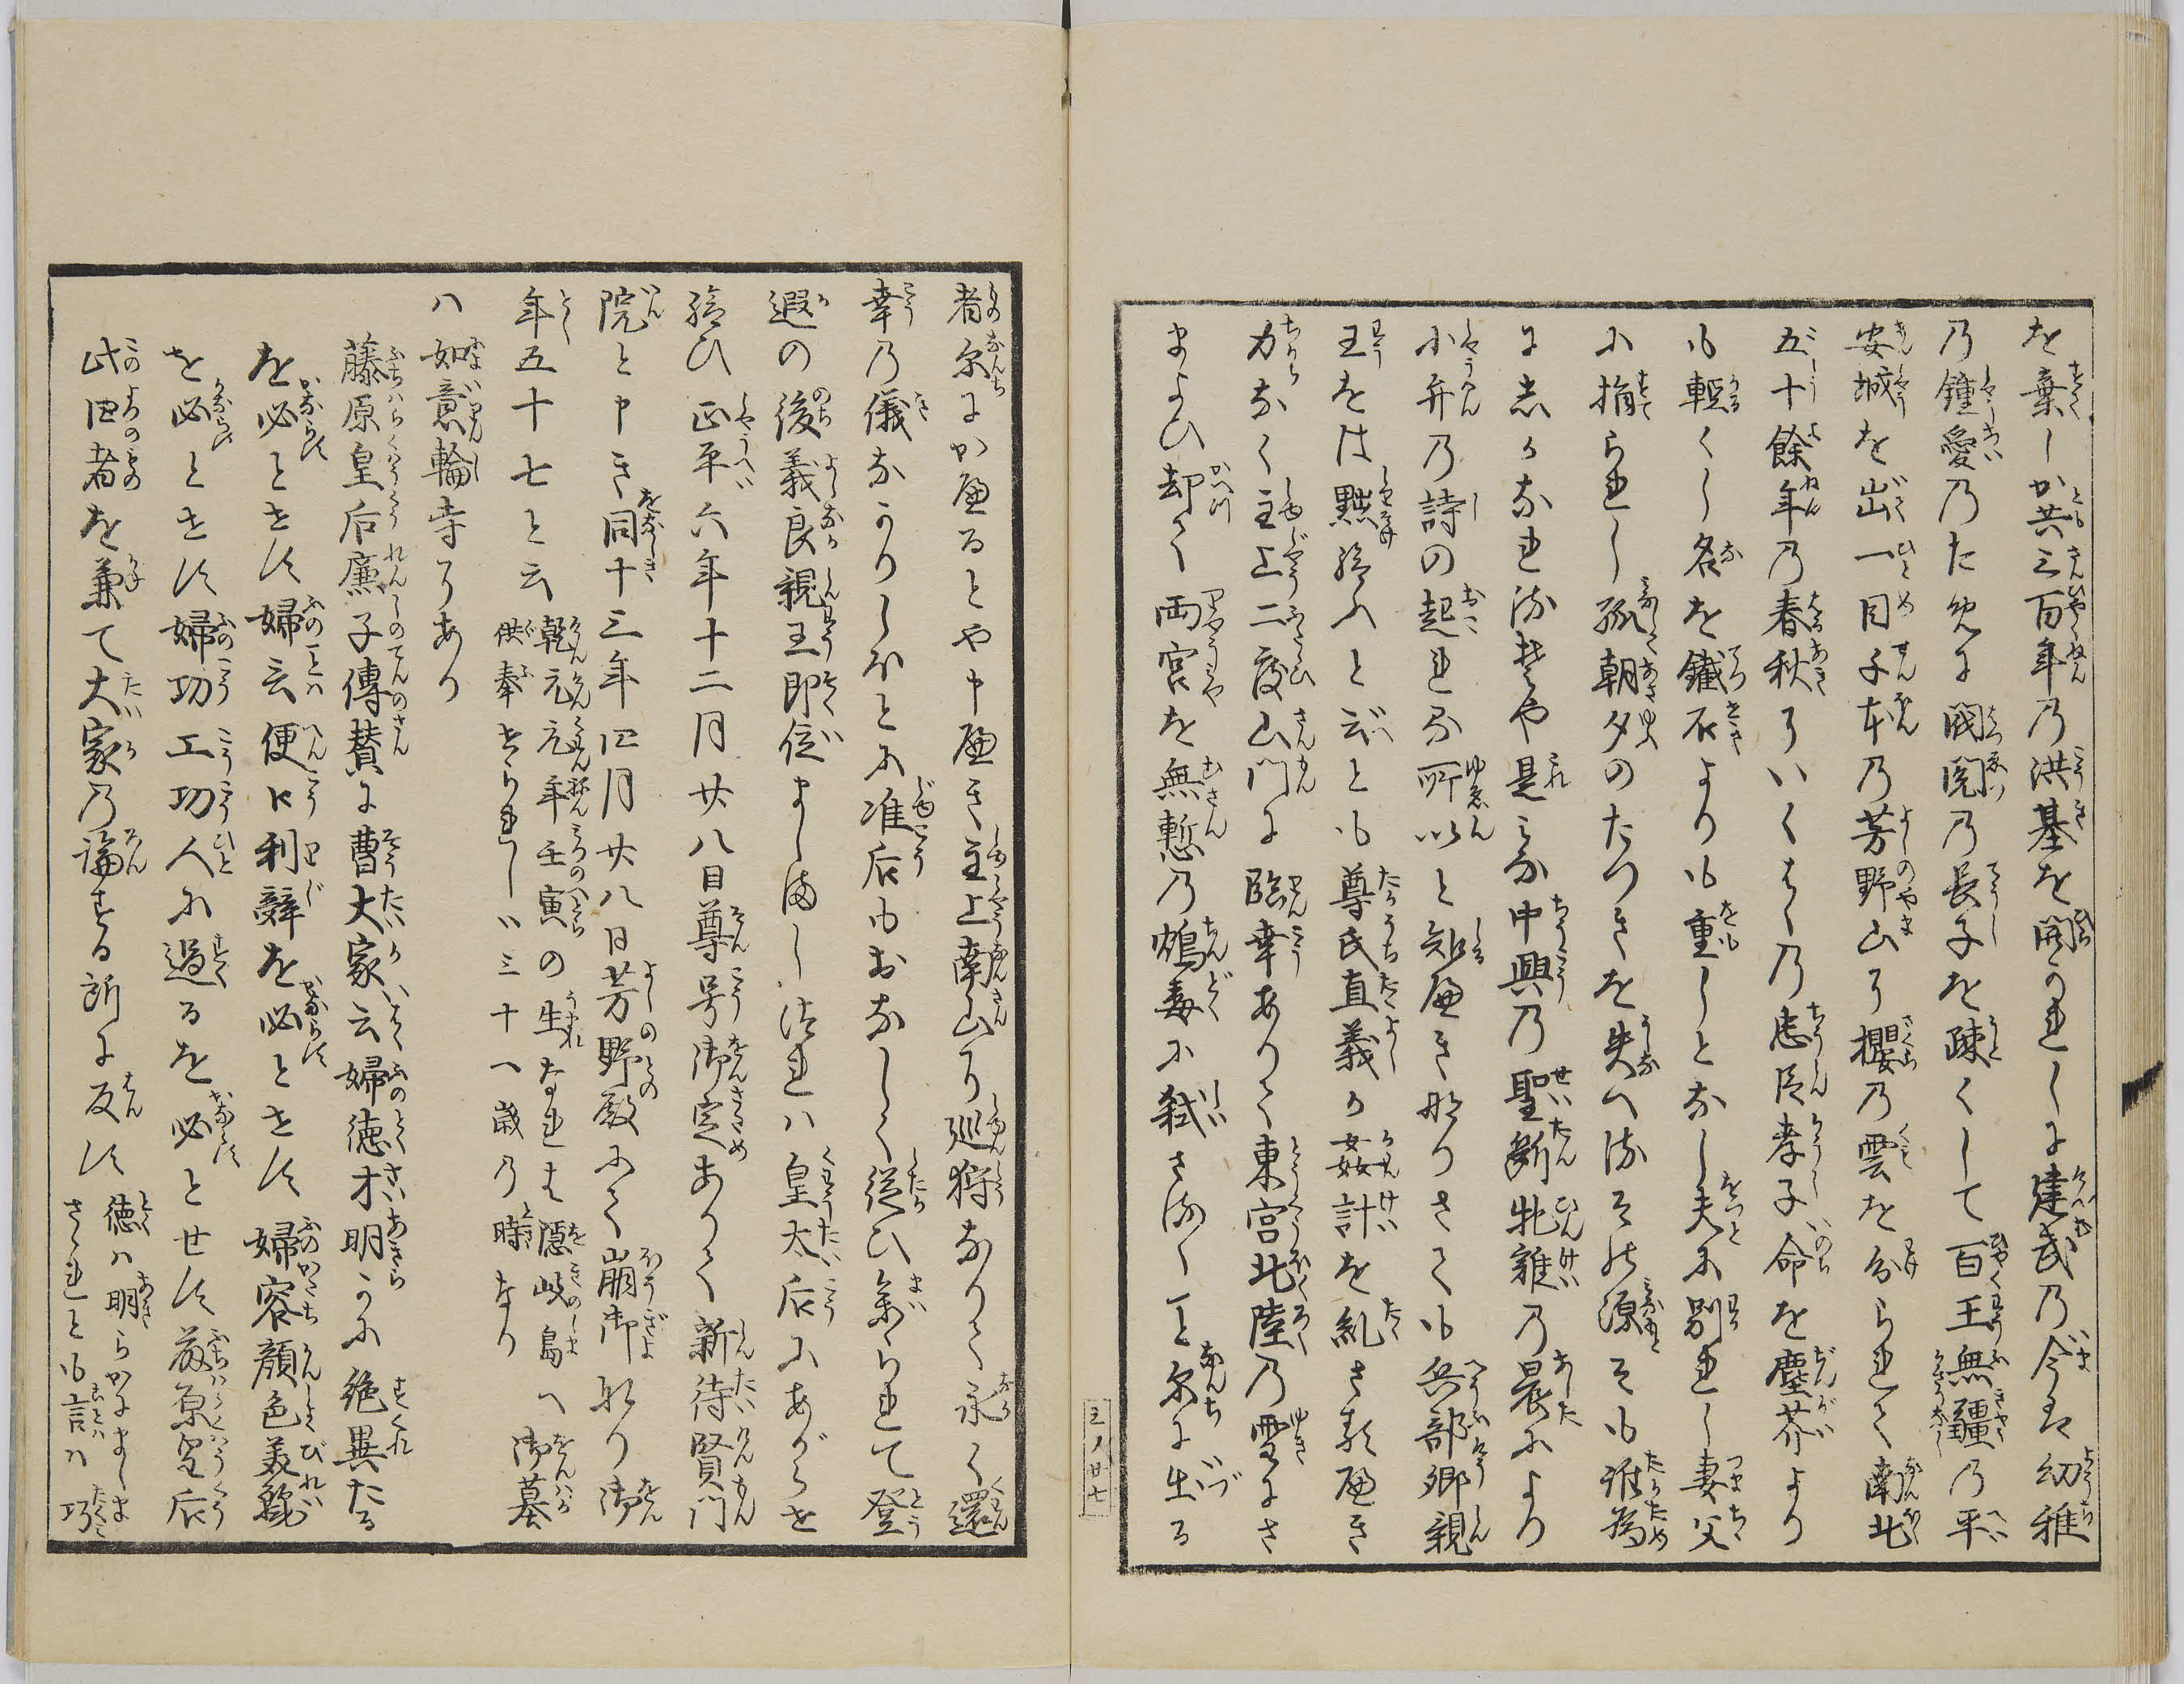 を棄しか共三百年乃洪基を開かれしに建武乃今は幼稚
乃鐘愛乃ために閥閲乃長子を疎くして百王無疆乃平
安城を出一目千本乃芳野山に櫻乃雲を分られて南北
五十餘年乃春秋にいくそく乃忠臣孝子命を塵芥より
も軽くし名を鐵石よりも重しとなし夫に別れし妻父
に捐られし孤朝夕のたつきを失へるその源そも誰為
にしかなれるぞや是みな中興乃聖断牝雞乃晨により
小弁乃詩の起れる所以と知べき也りさても兵部卿親
王をは黙給へと云とも尊氏直義か姦計を糺さるべき
力なく主上二度山門に臨幸ありて東宮北陸乃雪にさ
まよひ却て両宮を無慙乃鴆毒に弑さる〻事尓に出る
三ノ廿七
者尓にか反るとや申べき主上南山に巡狩ありて永く還
幸乃儀なかりしほとに准后もおなしく従ひ参られて登
遐の後義良親王即位ましましけれハ皇太后にあがらせ
給ひ正平六年十二月廿八日尊号御定ありて新待賢門
院と申き同十三年四月廿八日芳野殿にて崩御也り御
年五十七と云乾元元年壬寅の生なれは隠岐島へ
供奉せられしハ三十一歳乃時なり御墓
ハ如意輪寺にあり
藤原皇后廉子傳賛に曹大家云婦徳才明かに絶異たる
を必とせす婦言便口利辭を必とせす婦容顔色美麗
を必とせす婦功工功人に過るを必とせす藤原皇后
此四者を兼て大家乃論する所に反す徳ハ明らかにましま
さゝれとも言ハ巧